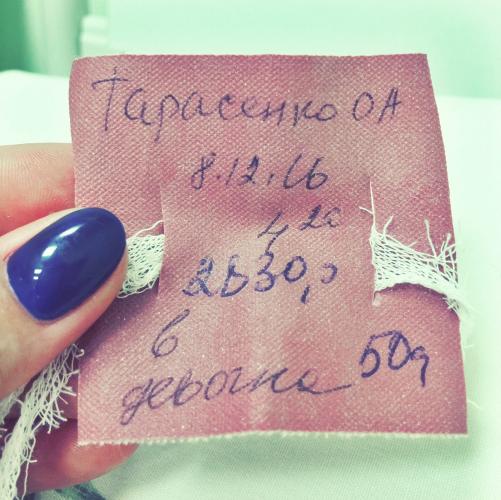 Тарасенко ОА
8.12.16
4 20
2830,0
6 50д
девочка